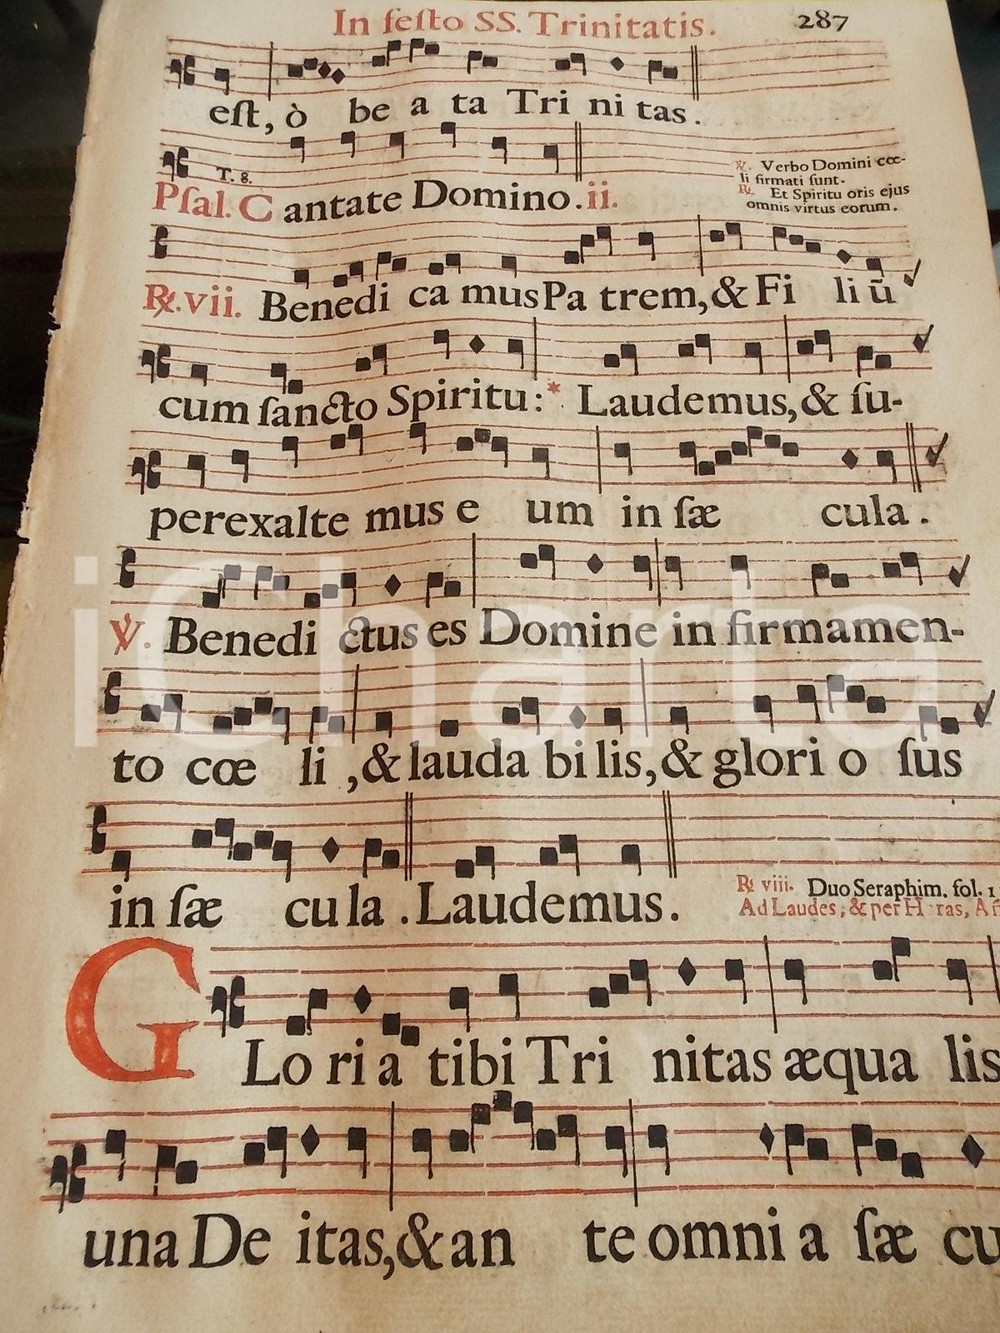 In feſto SS. Trinitatis. 287
eſt, ò be a ta Tri ni tas.
T. 8.
Pſal. C antate Domino. ii.
℣. Verbo Domini cœ-
li firmati ſunt.
℟. Et Spiritu oris ejus
omnis virtus eorum.
℟. vii. Benedi ca mus Pa trem, & Fi li ũ
cum ſancto Spiritu: * Laudemus, & ſu-
perexalte mus e um in ſæ cula.
℣. Benedi ctus es Domine in firmamen-
to cœ li, & lauda bi lis, & glori o ſus
in ſæ cu la. Laudemus.
℟. viii. Duo Seraphim. fol. 1
Ad Laudes, & per H ras, A
GLo ri a tibi Tri nitas æqua lis
una De itas, & an te omni a ſæ cu
iCharta